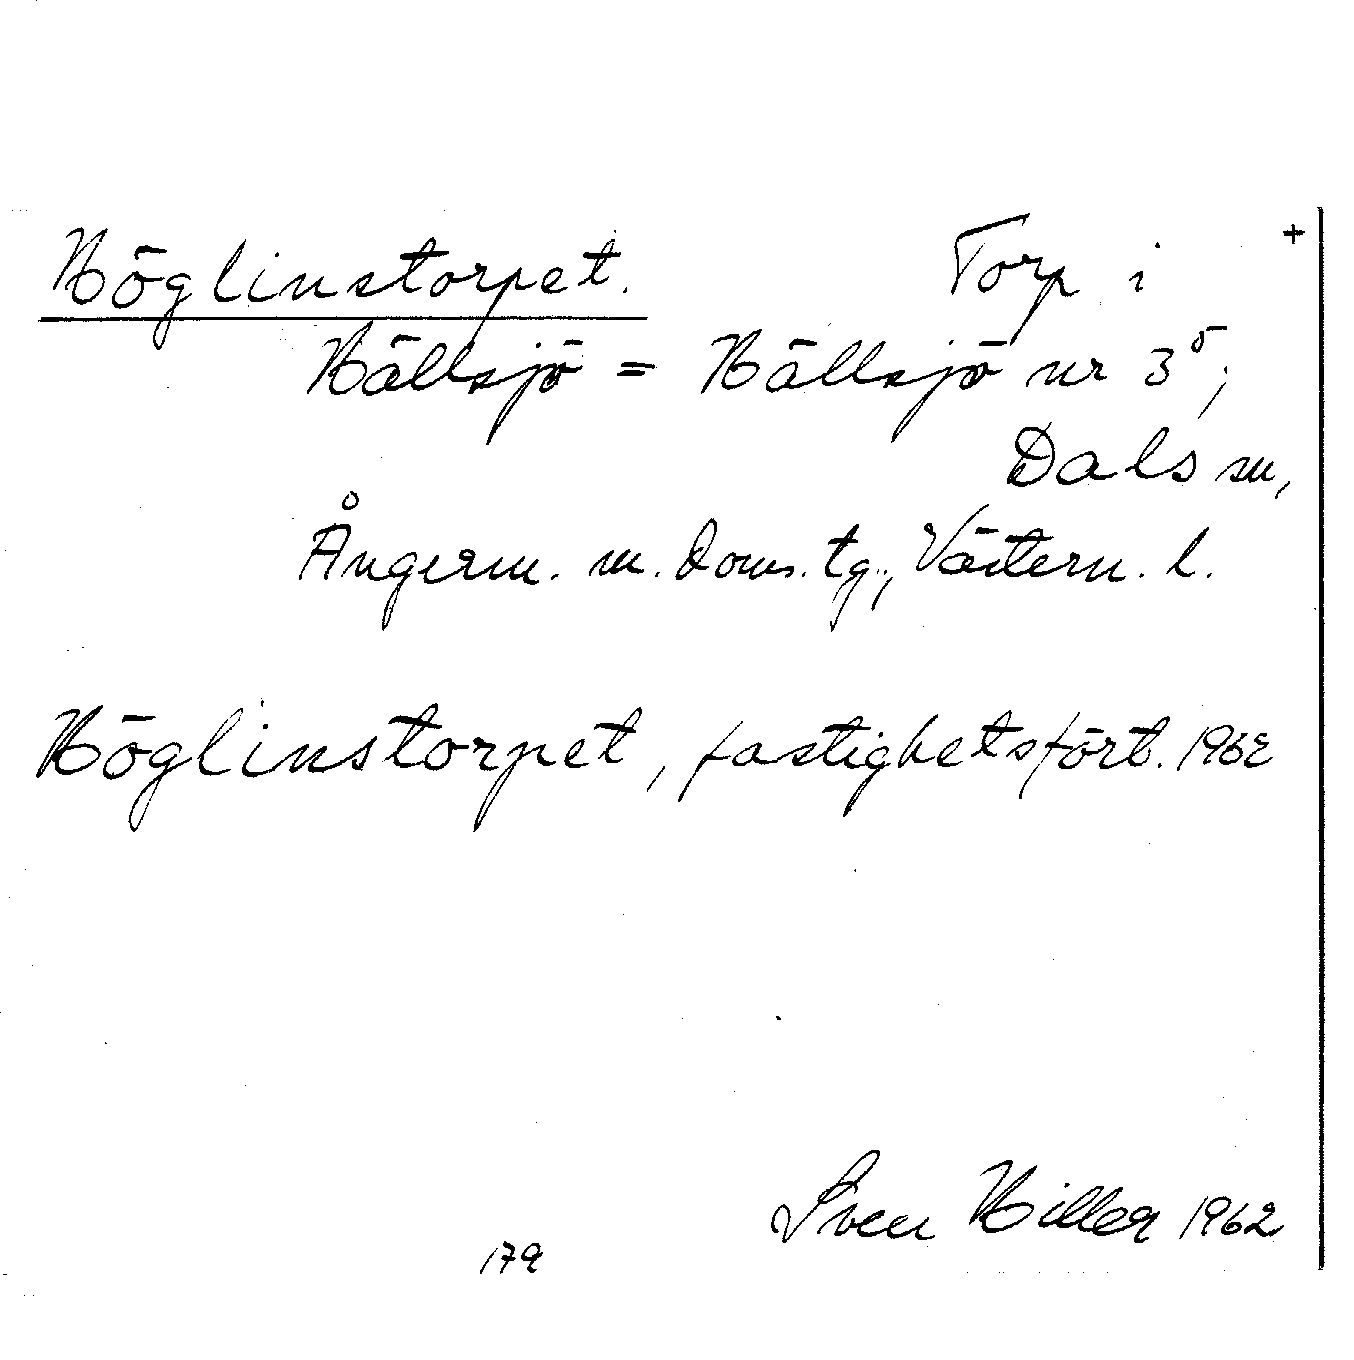 Höglinstorpet. Torp i +
Hällsjö = Hällsjö nr 3⁵;
Dals sn,
Ångerm. m. doms. tg., Västern. l.
Höglinstorpet, fastighetsfört. 1962
Sven Hiller 1962
179